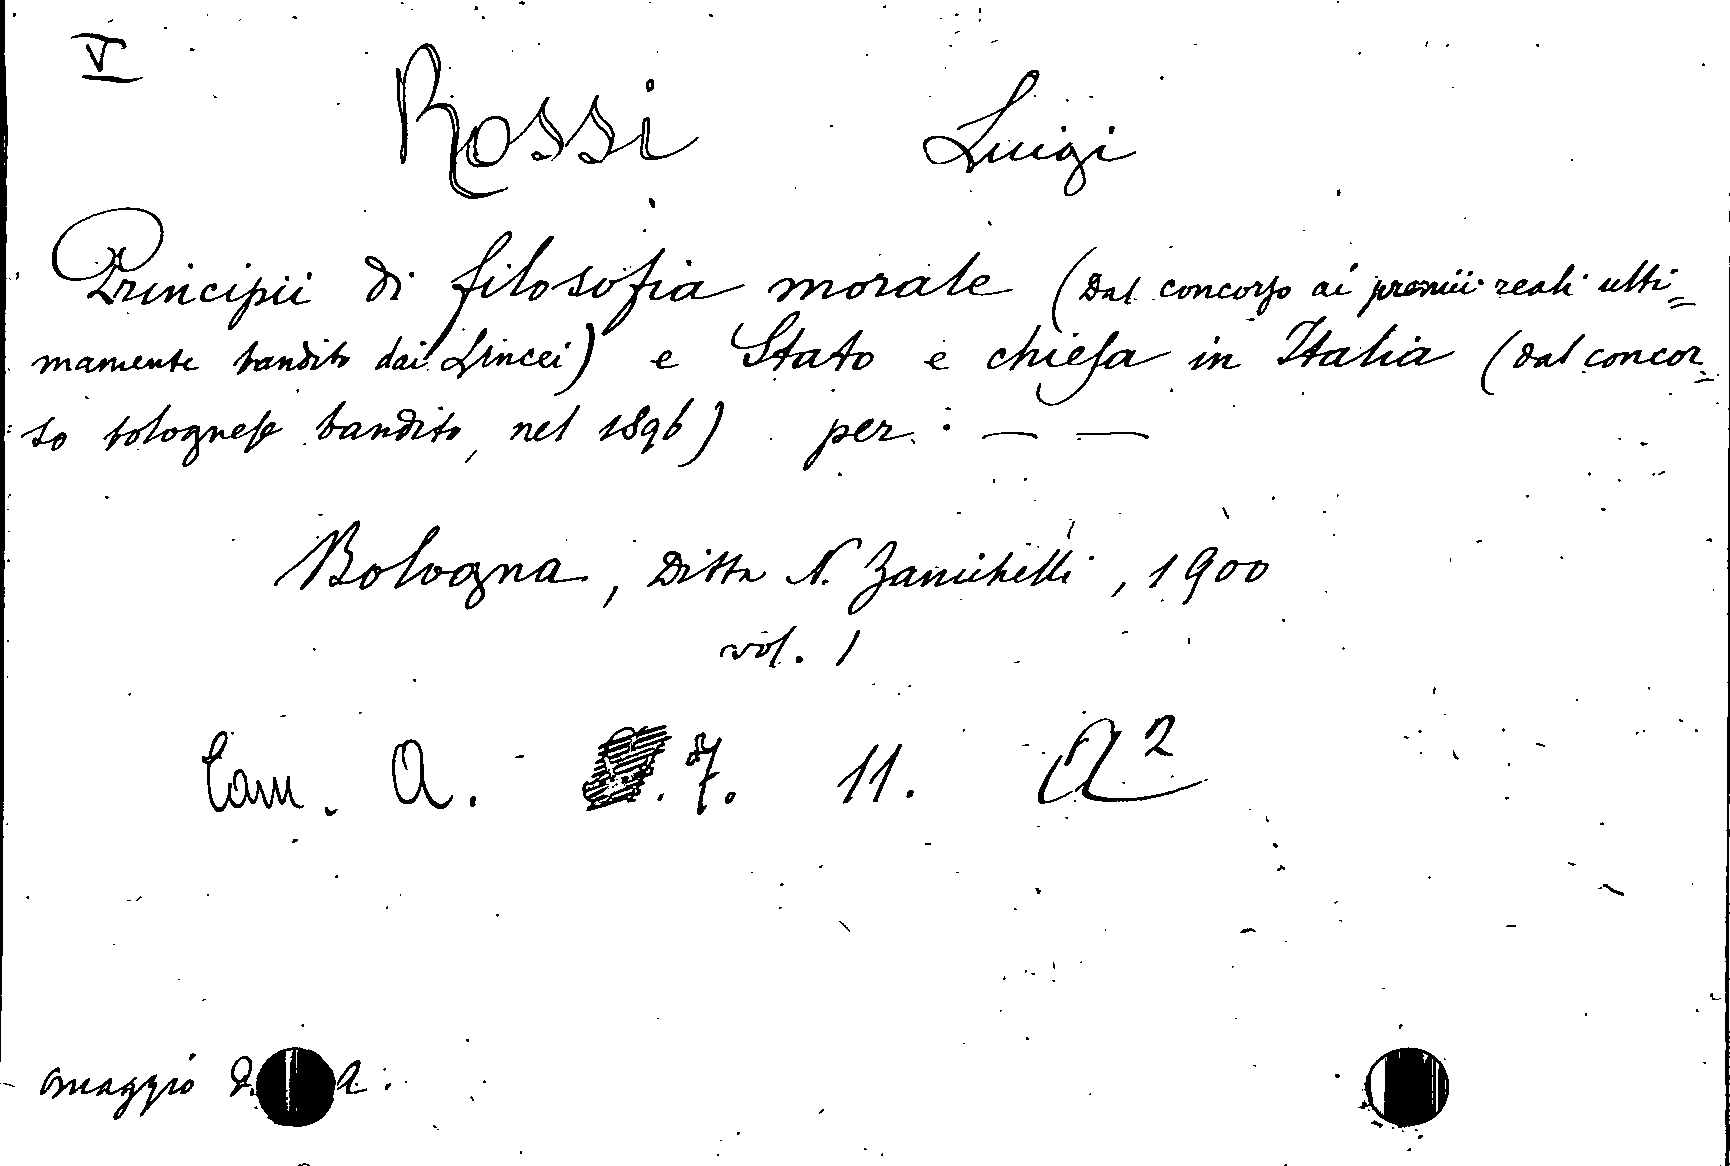 V
Rossi Luigi
Principii di filosofia morale (dal concorso ai premii reali ulti=
mamente bandito dai Lincei) e Stato e chiesa in Italia (dal concor=
so bolognese bandito, nel 1896) per : — —
Bologna, Ditta N. Zanichelli, 1900
vol. 1
Cam. A. . 7. 11. A2
omaggio d. a.